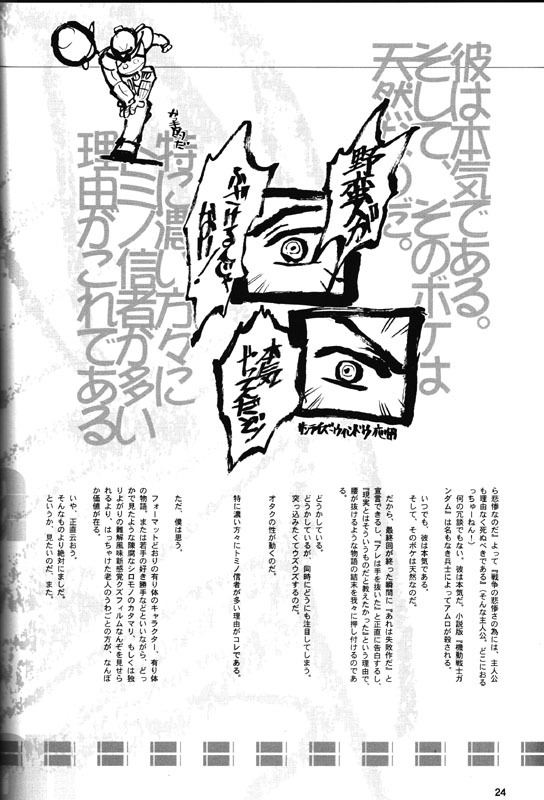 彼は本気である。
そして、そのボケは
天然なのだ。
特に濃い方々に
トミノ信者が多い
理由がこれである
野蛮人が
ふざけるんじゃ
本気
ら悲惨なのだ』よって『戦争の悲惨さの為には、主人公
も理由なく死ぬべきである』(そんな主人公、どこにおる
っちゅーねん!)
何の冗談でもない、彼は本気だ、小説版『機動戦士ガ
ンダム』は名もなき兵士によってアムロが殺される。
いつでも、彼は本気である。
そして、そのボケは天然なのだ。
だから、最終回が終った瞬間に『あれは失敗作だ』と
宣言できるし、『アレは手を抜いた』と正直に告白するし、
『現実とはそういうものだと教えたかった』という理由で、
腰が抜けるような物語の結末を我々に押し付けるのであ
る。
どうかしている。
どうかしているが、同時にどうにも注目してしまう。
突っ込みたくてウズウズするのだ。
オタクの性が動くのだ。
特に濃い方々にトミノ信者が多い理由がコレである。
ただ、僕は思う。
フォーマットどおりの有り体のキャラクター、有り体
の物語、または若手の好き勝手などといいながら、どっ
かで見たような陳腐なシロモノのカタマリ、もしくは独
りよがりの難解風味新感覚クズフィルムなんぞを見せら
れるより、はっちゃけた老人のうわごとの方が、なんぼ
か価値が在る。
いや、正直云おう。
そんなものより絶対にましだ。
というか、見たいのだ、また。
24